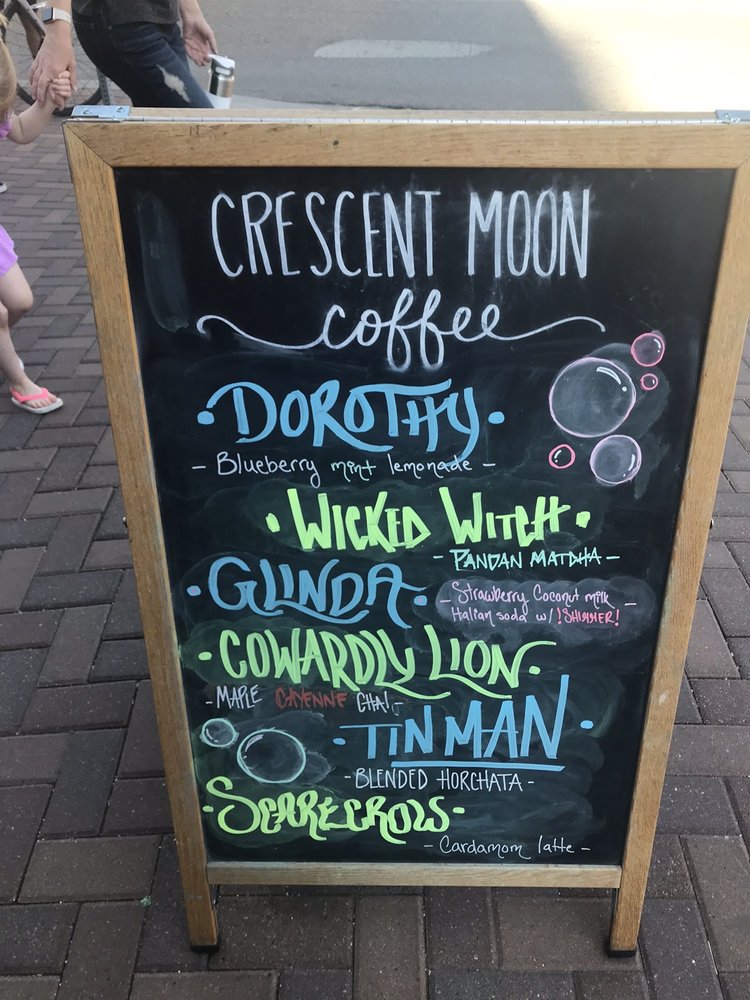 CRESCENT MOON
coffee
• DOROTHY •
- Blueberry mint lemonade -
• WICKED WITCH •
- PANDAN MATCHA -
• GLINDA •
- Strawberry Coconut milk -
Italian soda w/ !SHIMMER!
• COWARDLY LION •
- MAPLE CAYENNE CHAI -
• TIN MAN •
- BLENDED HORCHATA -
• SCARECROW •
- Cardamom latte -